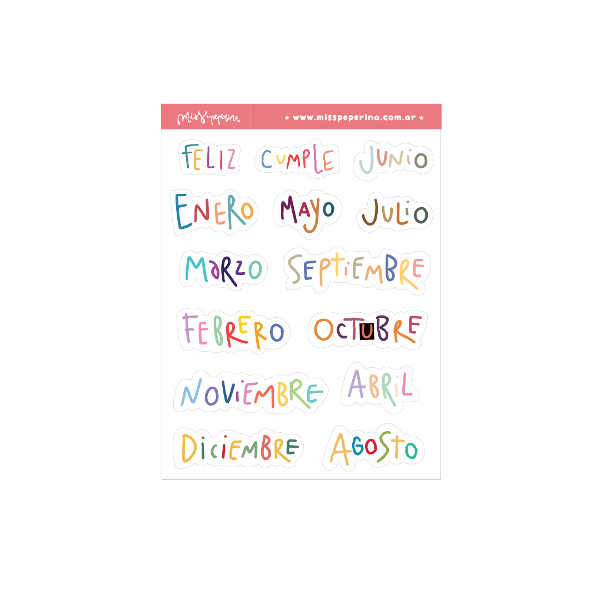 Miss Peperina
★ www.misspeperina.com.ar ★
FELIZ CUMPLE JUNIO
ENERO MAYO JULIO
MARZO SEPTIEMBRE
FEBRERO OCTUBRE
NOVIEMBRE ABRIL
DICIEMBRE AGOSTO